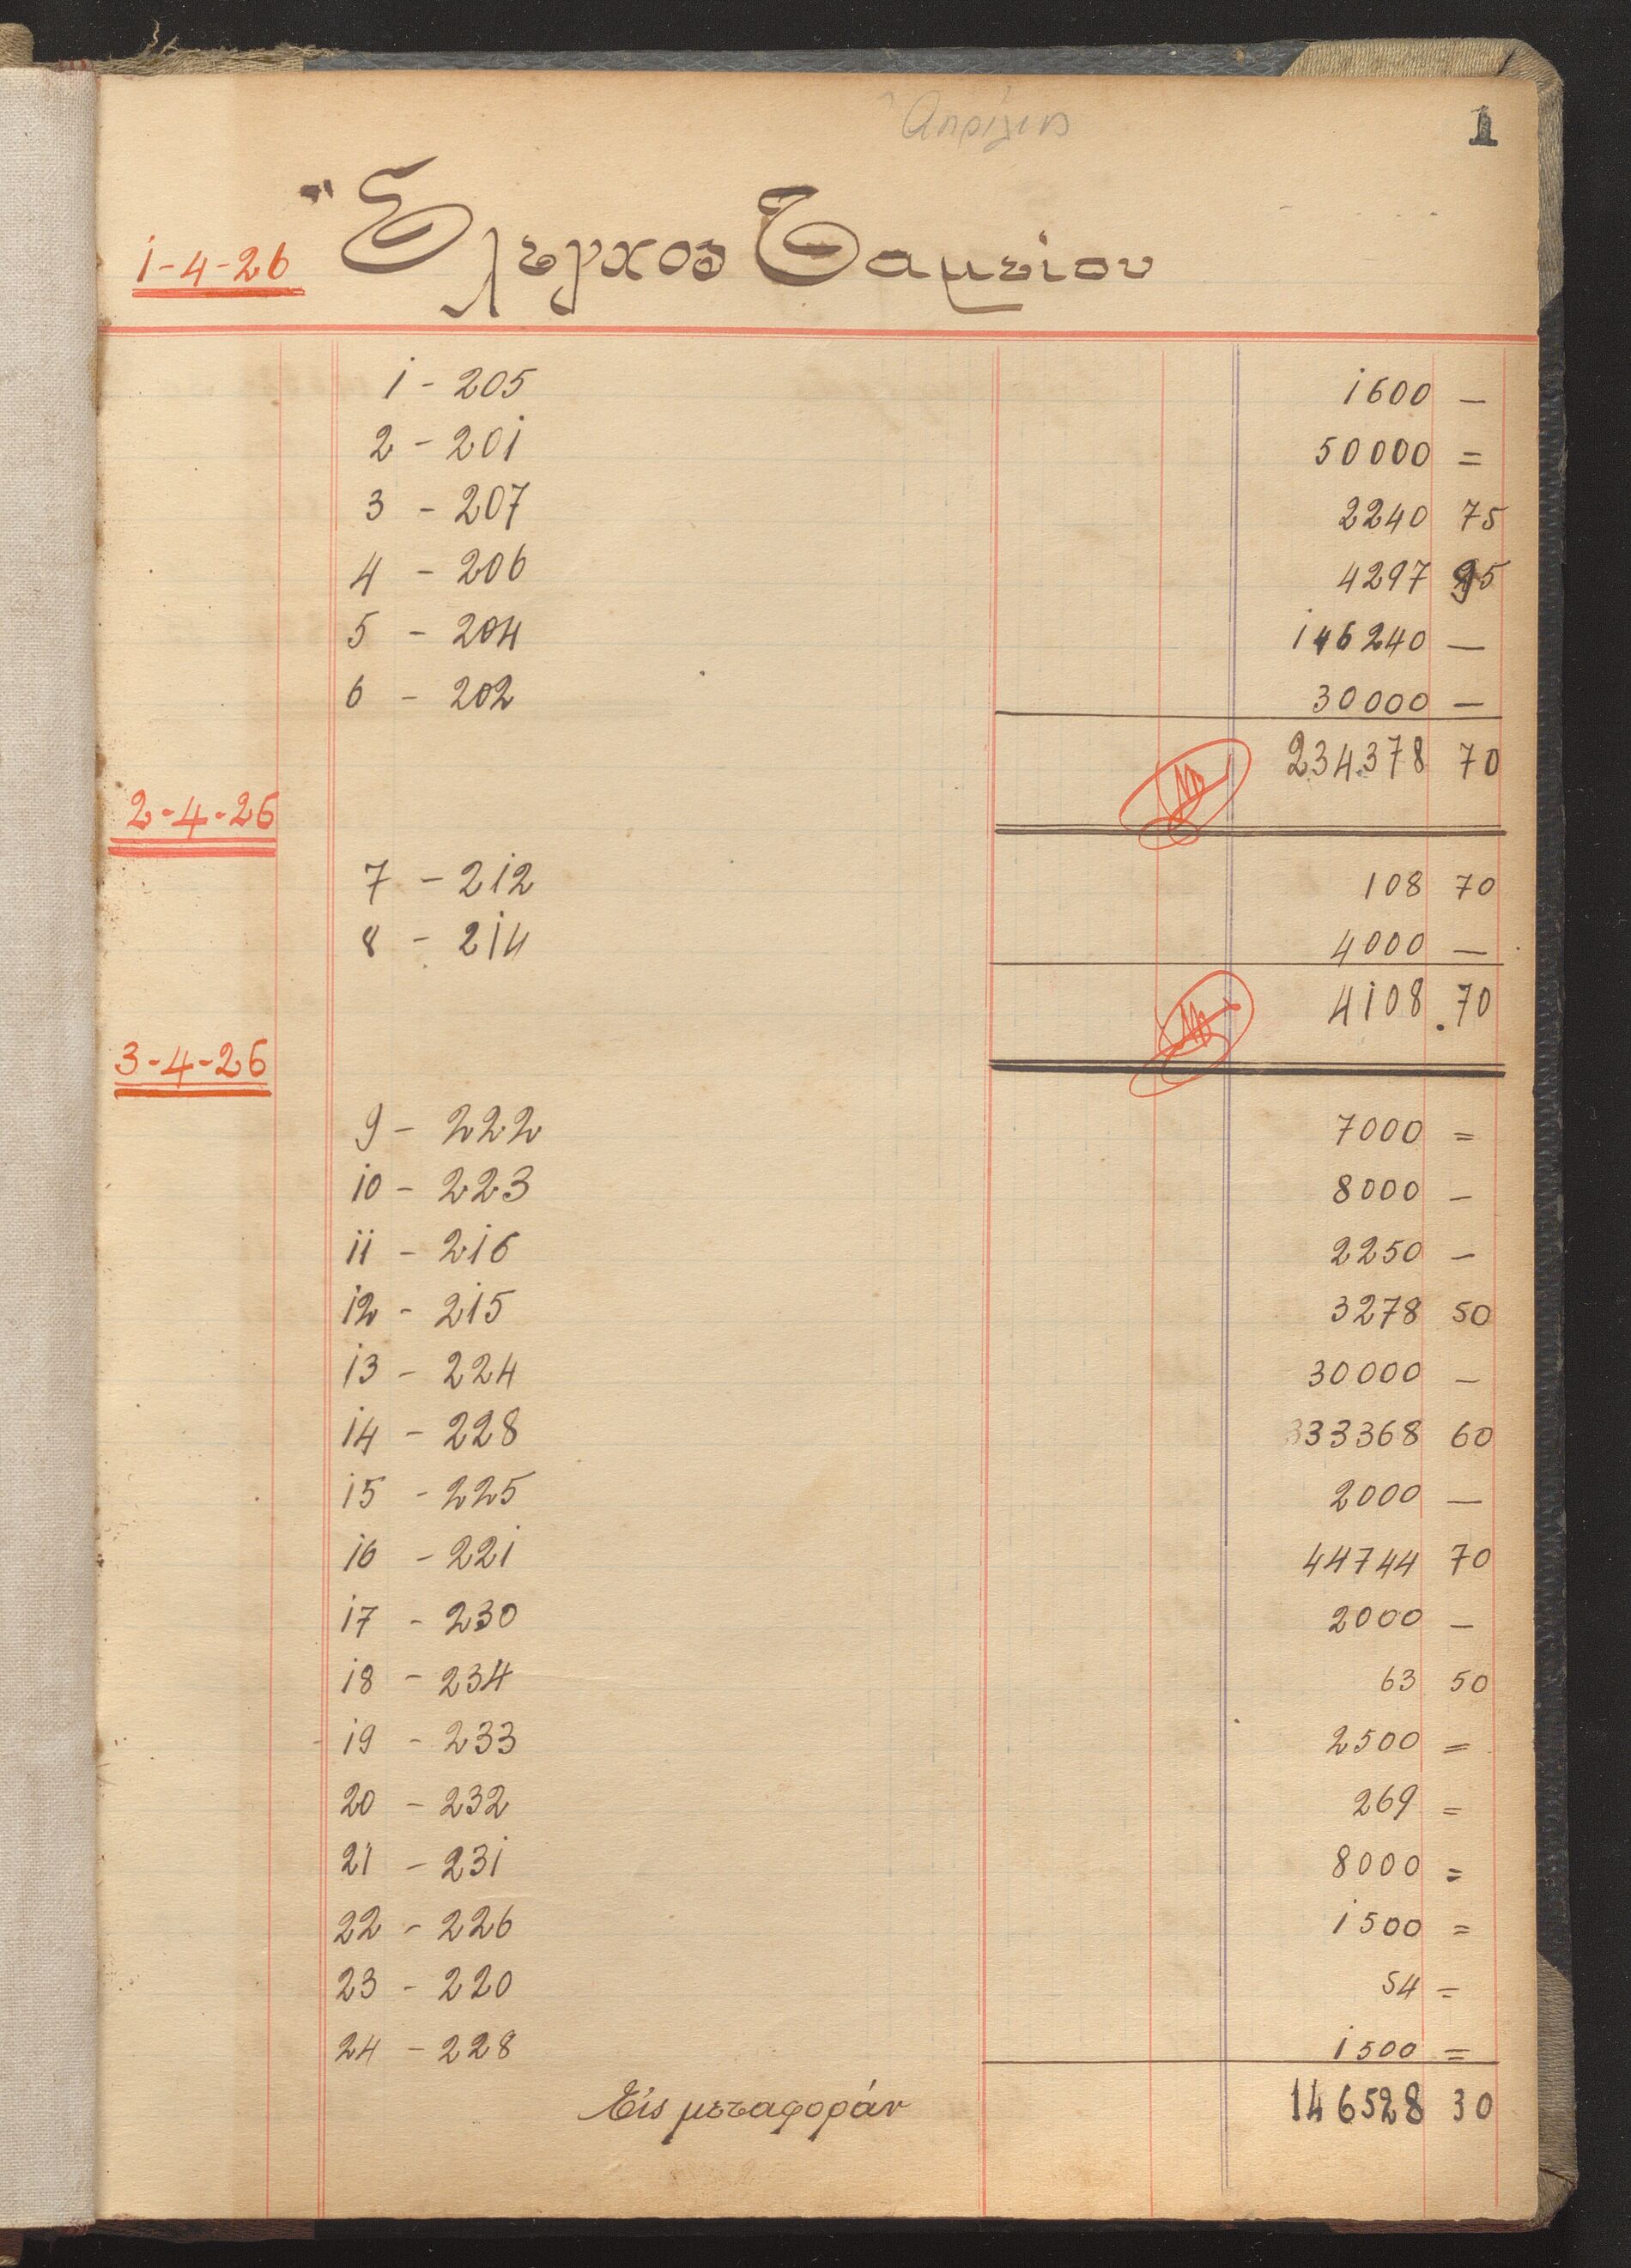 Απρίλιος
1
1-4-26 Έλεγχος Ταμείου
1 - 205 1600 —
2 - 201 50000 =
3 - 207 2240 75
4 - 206 4297 95
5 - 204 146240 —
6 - 202 30000 —
234.378 70
2-4-26
7 - 212 108 70
8 - 214 4000 —
4108.70
3-4-26
9 - 222 7000 =
10 - 223 8000 —
11 - 216 2250 —
12 - 215 3278 50
13 - 224 30000 —
14 - 228 33368 60
15 - 225 2000 —
16 - 221 44744 70
17 - 230 2000 —
18 - 234 63 50
19 - 233 2500 =
20 - 232 269 =
21 - 231 8000 =
22 - 226 1500 =
23 - 220 54 =
24 - 228 1500 =
Εἰς μεταφοράν 146528 30